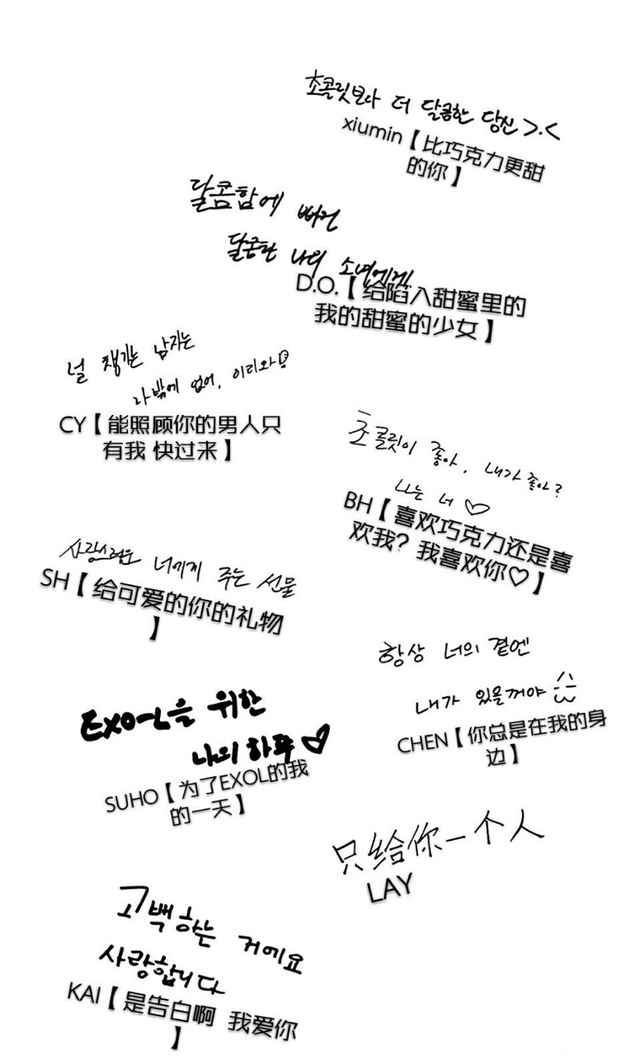 초콜릿보다 더 달콤한 당신 >.<
xiumin【比巧克力更甜
的你】
달콤함에 빠진
달콤한 나의 소녀에게
D.O.【给陷入甜蜜里的
我的甜蜜的少女】
널 챙기는 남자는
나 밖에 없어, 이리와
CY【能照顾你的男人只
有我 快过来】
초콜릿이 좋아, 내가 좋아?
나는 너 ♡
BH【喜欢巧克力还是喜
欢我？我喜欢你♡】
사랑스러운 너에게 주는 선물
SH【给可爱的你的礼物
】
항상 너의 곁엔
내가 있을꺼야
CHEN【你总是在我的身
边】
EXO-L을 위한
나의 하루 ♡
SUHO【为了EXOL的我
的一天】
只给你一个人
LAY
고백하는 거에요
사랑합니다
KAI【是告白啊 我爱你
】